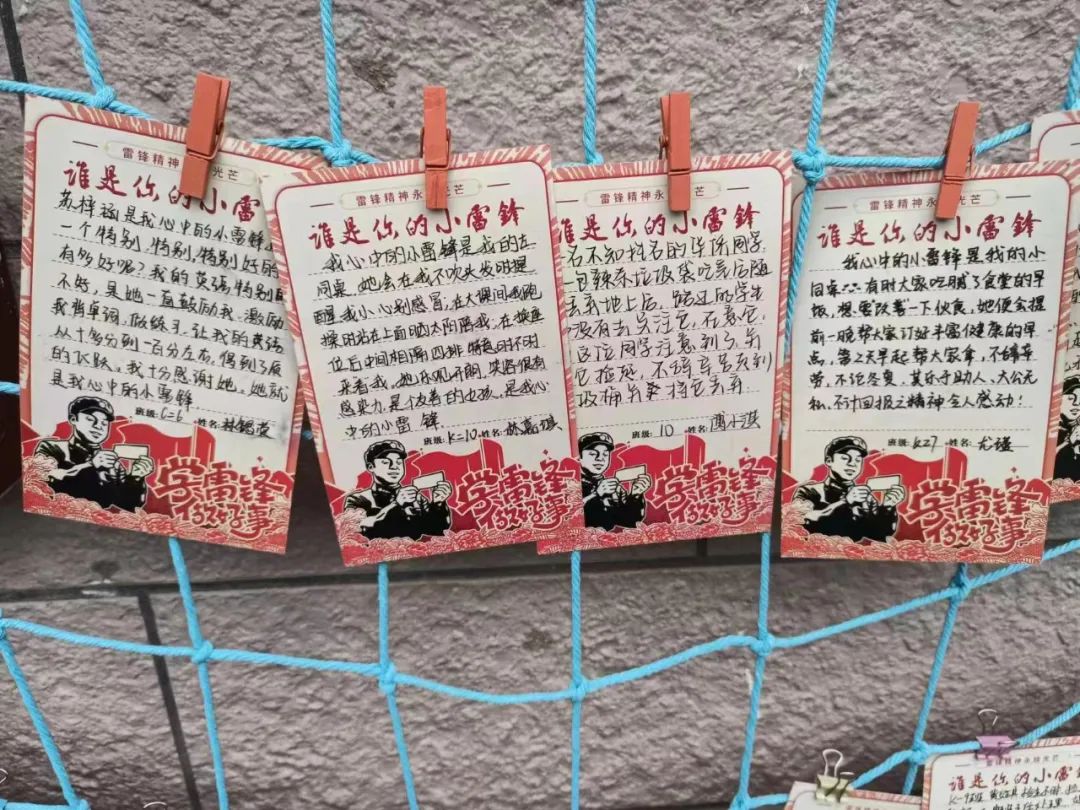 雷锋精神 光芒
谁是你的小雷
是我心中的小雷锋
一个特别,特别,特别好的
有多好呢?我的英语特别
不好,是她一直鼓励我,激励
我背单词,做练习,让我的英语
从十多分到一百分左右,得到了质
的飞跃。我十分感谢她,她就
是我心中的小雷锋
班级: 姓名:
学雷锋
做好事
雷锋精神永 光芒
谁是你的小雷鋒
我心中的小雷锋是我的左
同桌,她会在我不吹头发时提
醒我小心别感冒,在大课间我跑
操时站在上面晒太阳陪我,在换座
位后中间相隔四排 时不时
来看我。她乐观开朗,笑容很有
感染力,是很善良的女孩。是我心
中的小雷锋
班级: K-10 姓名:
学雷锋
做好事
雷锋精神永 光芒
谁是你的小雷鋒
名不知姓名的 同学
包辣条垃圾袋吃完后随
丢弃地上后,路过的学生
没有去关注它,在意它,
这位同学注意到了并
它捡起,不辞辛苦去到
圾桶并来将它丢弃。
班级: 10 姓名:
学雷锋
做好事
雷锋精神永 光芒
谁是你的小雷鋒
我心中的小雷锋是我的小
同桌……有时大家吃腻了食堂的早
饭,想要改善一下伙食,她便会提
前一晚帮大家订好丰富健康的早
点,第2天早起帮大家拿,不辞辛
劳,不论冬夏,其乐于助人、大公无
私、不计回报之精神令人感动!
班级: K27 姓名: 尤瑾
学雷锋
做好事
雷锋精神永 光芒
谁是你的小雷